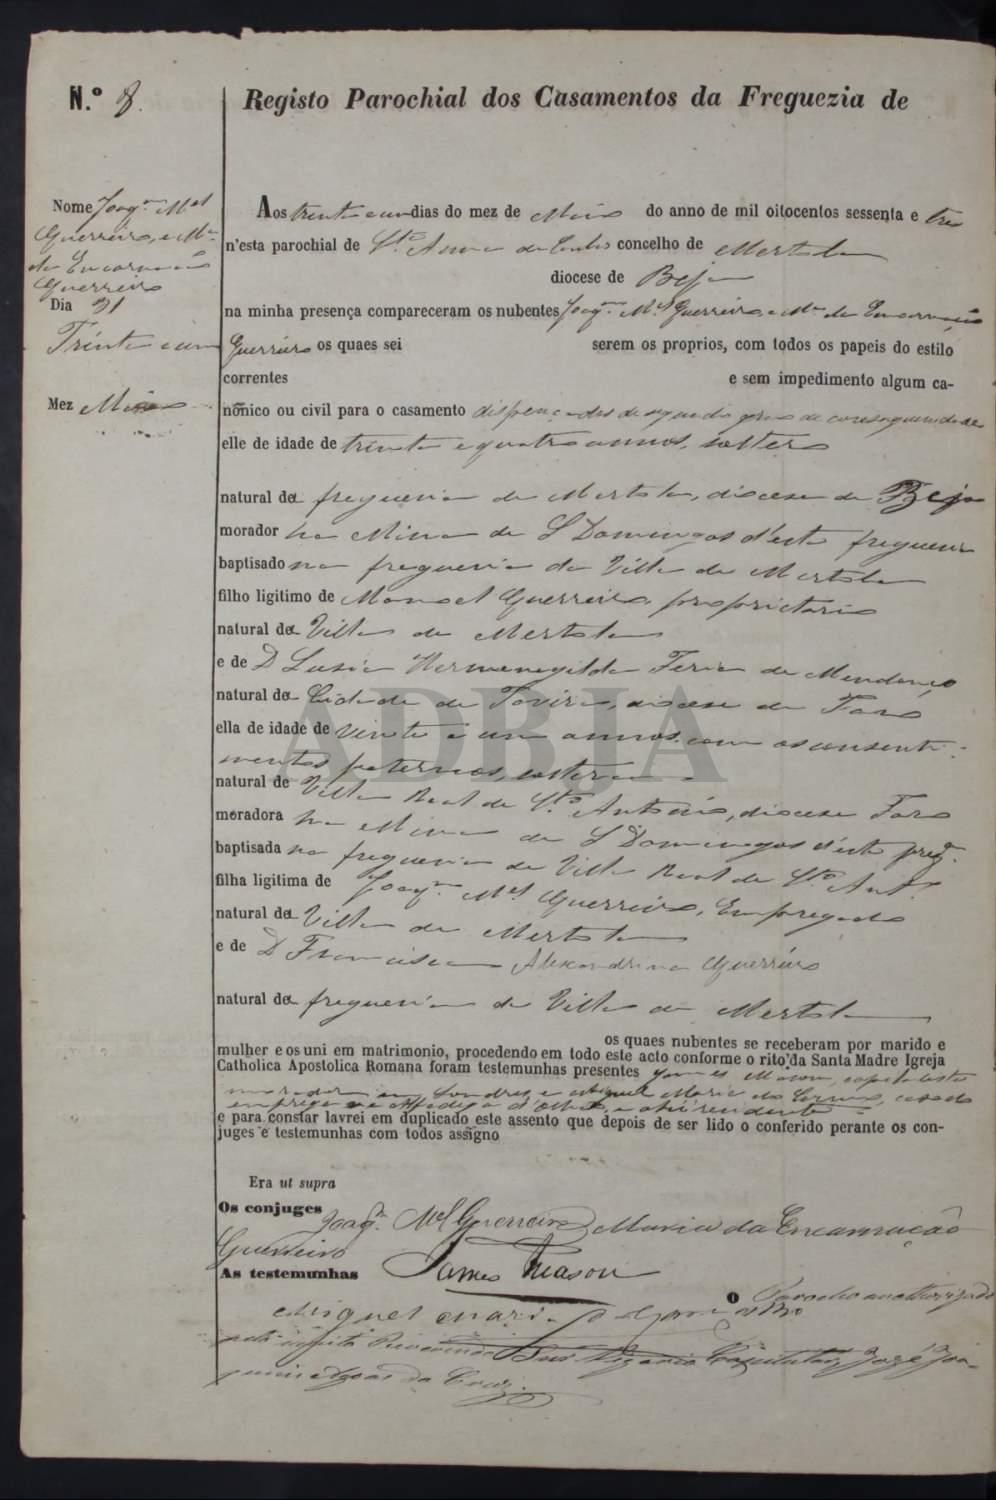 N.º 8.
Registo Parochial dos Casamentos da Freguezia de
Nome Joaqm Mel
Guerreiro, e Ma
da Encarnação
Guerreiro
Dia 31
Trinta e um
Mez Maio
Aos trinta e um dias do mez de Maio do anno de mil oitocentos sessenta e tres
n'esta parochial de Sta Anna de Cambas concelho de Mertola
diocese de Beja
na minha presença compareceram os nubentes Joaqm Mel Guerreiro, e Ma da Encarnação
Guerreiro os quaes sei serem os proprios, com todos os papeis do estilo
correntes e sem impedimento algum ca-
nónico ou civil para o casamento dispençados do segundo grao de consaguinidade
elle de idade de trinta e quatro annos, solteiro
natural da freguezia de Mertola, diocese de Beja
morador na Mina de S Domingos d'esta freguezia
baptisado na freguezia da Villa de Mertola
filho ligitimo de Manoel Guerreiro, proprietario
natural da Villa de Mertola
e de D Luzia Hermenegilda Feria de Mendonça
natural da Cidade de Tavira, diocese de Faro
ella de idade de vinte e um annos com os consenti-
mentos paternos, solteira
natural de Villa Real de Sto Antonio, diocese Faro
moradora na Mina de S Domingos d'esta freg.
baptisada na freguezia de Villa Real de Sto Anto
filha ligitima de Joaqm Mel Guerreiro, Empregado
natural da Villa de Mertola
e de D Francisca Alexandrina Guerreiro
natural da freguezia da Villa de Mertola
os quaes nubentes se receberam por marido e
mulher e os uni em matrimonio, procedendo em todo este acto conforme o rito da Santa Madre Igreja
Catholica Apostolica Romana foram testemunhas presentes James Mason, capitalista
morador em Londres, e Miguel Maria do Carmo, casado
empregado
e para constar lavrei em duplicado este assento que depois de ser lido o conferido perante os con-
juges e testemunhas com todos assigno
Era ut supra
Os conjuges Joaqm Mel Guerreiro Maria da Encarnação
Guerreiro
As testemunhas James Mason
O Parocho authorizado
Miguel Maria do Carmo
pelo Reverendo Snr Vigario Capitular, José Joa-
quim da Cruz
ADBJA